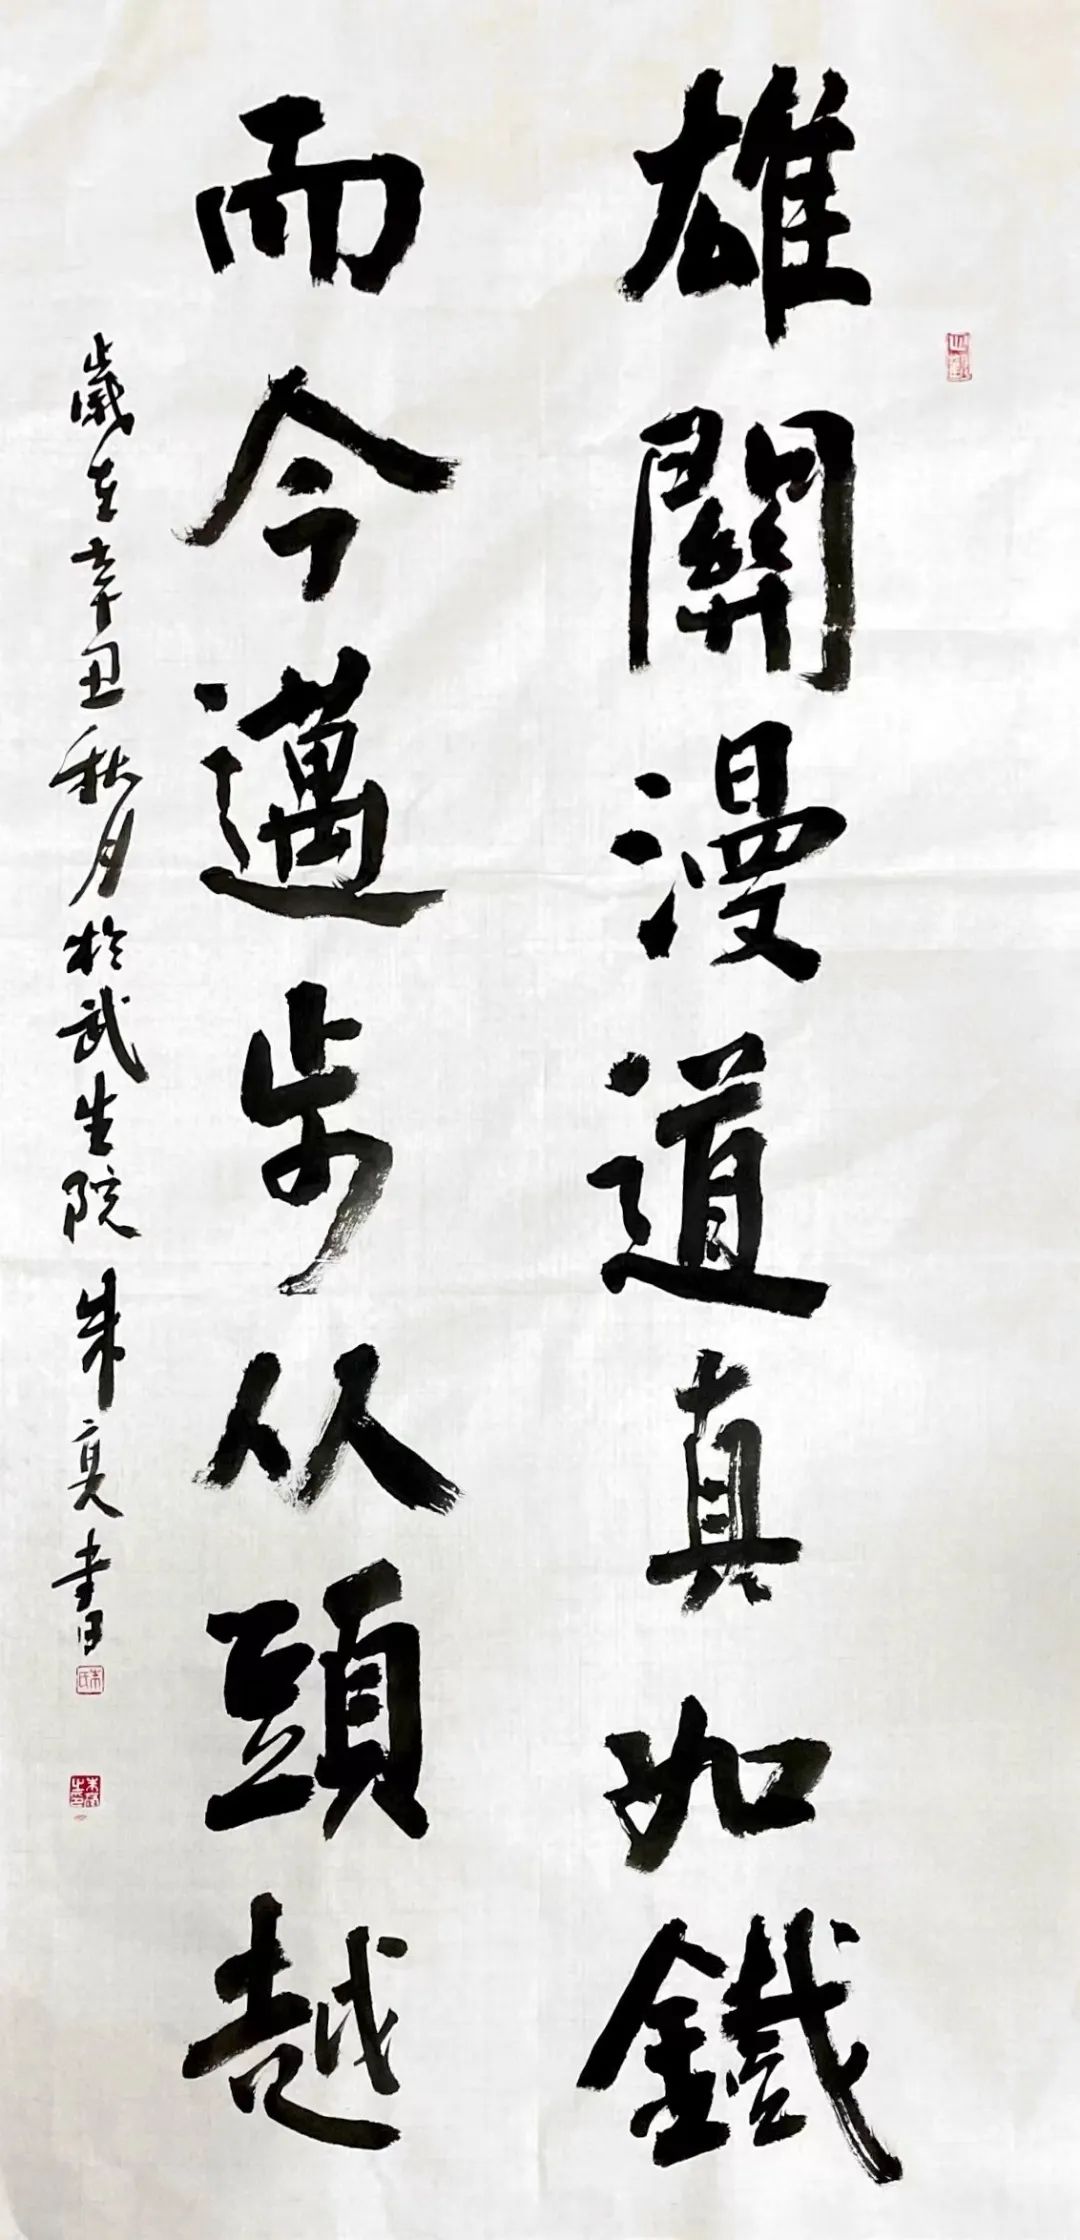 雄關漫道真如鐵
而今邁步从頭越
歲在辛丑秋月於武生院朱亮書
朱氏